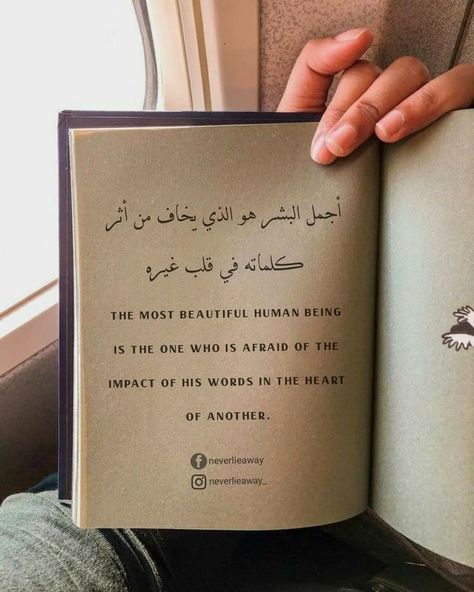 أجمل البشر هو الذي يخاف من أثر
كلماته في قلب غيره
THE MOST BEAUTIFUL HUMAN BEING
IS THE ONE WHO IS AFRAID OF THE
IMPACT OF HIS WORDS IN THE HEART
OF ANOTHER.
neverlieaway
neverlieaway_